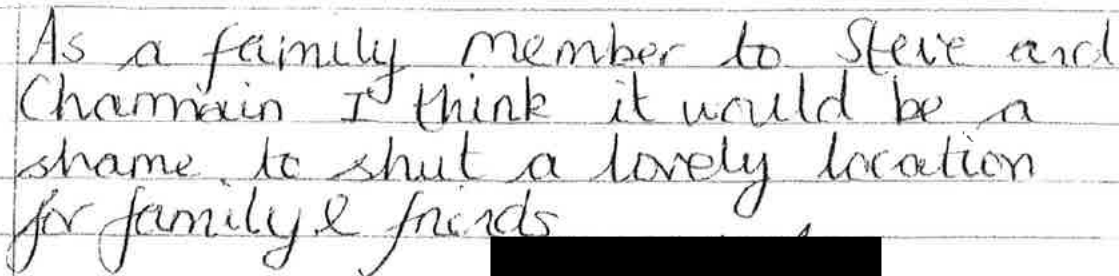 As a family member to Steve and
Charmain I think it would be a
shame to shut a lovely location
for family & friends